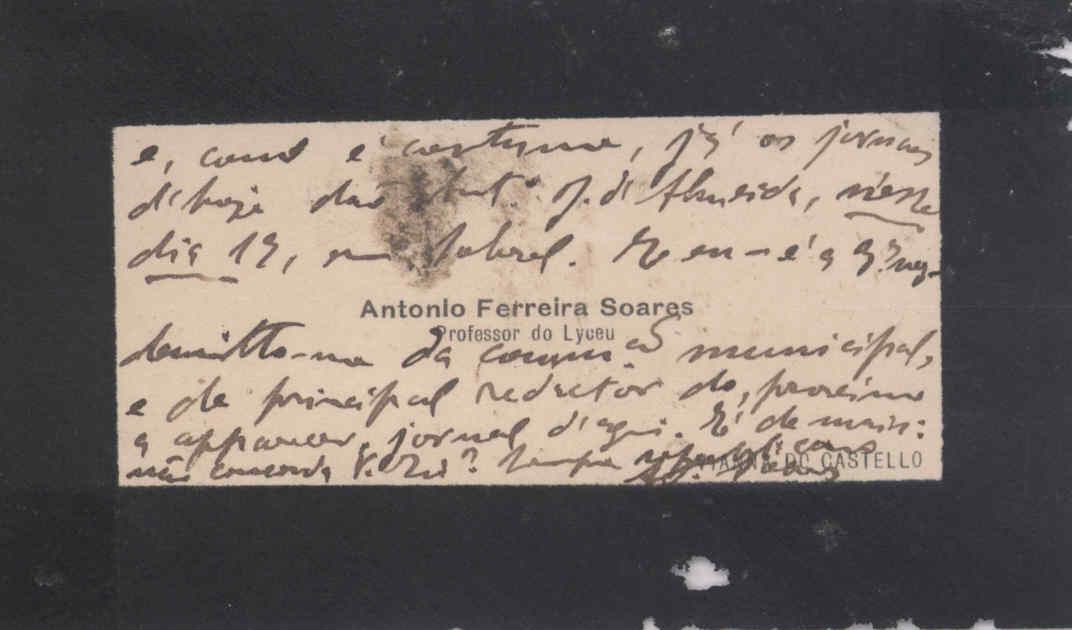 e, como é costume, já os jornaes
d'hoje dão Ant.º J. d'Almeida, n'esse
dia 19, no Sobral. E eu - é a 3ª vez -
Antonio Ferreira Soares
Professor do Lyceu
demitto-me da comm.ão municipal,
e de principal redactor do, proximo
a apparecer, jornal d'aqui. É de mais:
não concorda V. Ex.ª? Sempre
DO CASTELLO